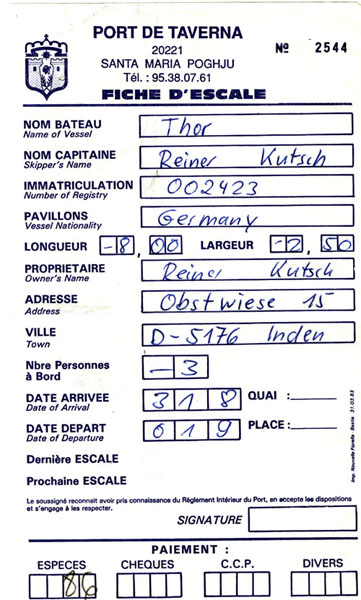 PORT DE TAVERNA
20221
SANTA MARIA POGHJU
Tél. : 95.38.07.61
Nº 2544
FICHE D'ESCALE
NOM BATEAU Thor
Name of Vessel
NOM CAPITAINE Reiner Kutsch
Skipper's Name
IMMATRICULATION 002423
Number of Registry
PAVILLONS Germany
Vessel Nationality
LONGUEUR -8,00 LARGEUR -2,50
PROPRIETAIRE Reiner Kutsch
Owner's Name
ADRESSE Obstwiese 15
Address
VILLE D-5176 Inden
Town
Nbre Personnes
à Bord -3
DATE ARRIVEE 318 QUAI :
Date of Arrival
DATE DEPART 019 PLACE :
Date of Departure
Dernière ESCALE
Prochaine ESCALE
Imp. Nouvelle Fiorella - Bastia 31.03.83
Le soussigné reconnait avoir pris connaissance du Règlement Intérieur du Port, en accepte les dispositions
et s'engage à les respecter.
SIGNATURE
PAIEMENT :
ESPECES CHEQUES C.C.P. DIVERS
86